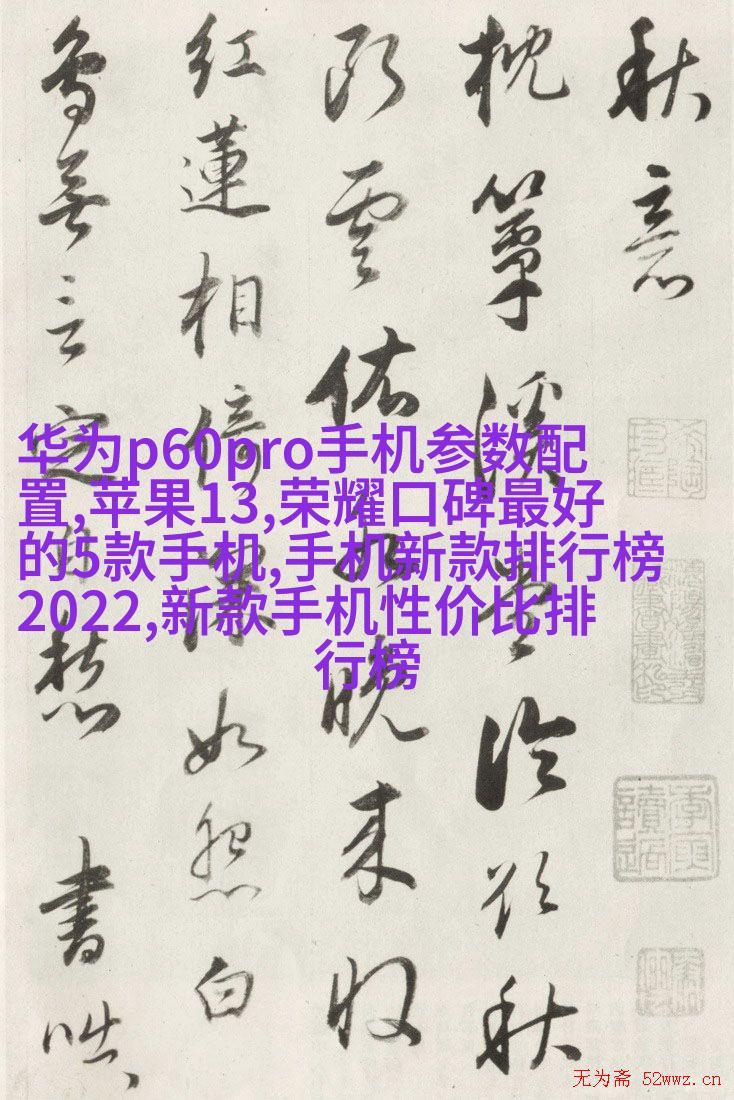 秋意
枕簟溪堂冷欲秋
断雲依水晚来收
红蓮相倚渾如怨白
鸟無言定自愁 書咄
华为p60pro手机参数配
置,苹果13,荣耀口碑最好
的5款手机,手机新款排行榜
2022,新款手机性价比排
行榜
无为斋 52wwz.cn